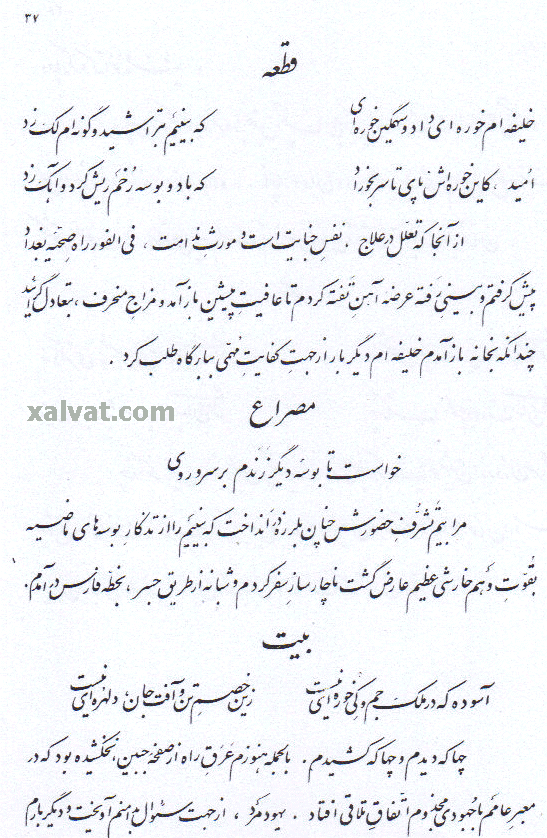 ۳۷
قطعه
خلیفه ام خوره ای داد و سهمگین خوره‌ای که بینیم بتراشید و گونه ام لک زد
امید، کاین خوره اش پای تا سر بخورد که باد و بوسه رخم ریش کرد و آبک زد
از آنجا که تعلل در علاج، نفس جنایت است و مورث ندامت، فی الفور راه صحیّه بغداد
پیش گرفتم و بینی رفته عرضه آهن تفته کردم تا عافیت پیشین باز آمد و مزاج منحرف، بتعادل گرائید
چندانکه بخانه باز آمدم خلیفه ام دیگر بار از جهت کفایت مهمّی ببارگاه طلب کرد.
xalvat.com
مصراع
خواست تا بوسه دیگر زندم بر سر و روی
مرا بیم تشرّف حضورش چنان بلرزه در انداخت که بینیم را از تذکار بوسه های ماضیه
بقوّت وهم خارشی عظیم عارض گشت ناچار ساز سفر کردم و شبانه از طریق جسر، بخطّه فارس در آمدم.
بیت
آسوده که در ملک جم و کی خوره ای نیست زین خصم تن و آفت جان، دلهره ای نیست
چها که دیدم و چها که کشیدم. بالجمله هنوزم عرق راه از صفحه جبین نخشکیده بود که در
معبر عامم با جهودی مجذوم اتّفاق تلاقی افتاد. یهودمرد، از جهت سئوال بدامنم آویخت و دیگر بارم